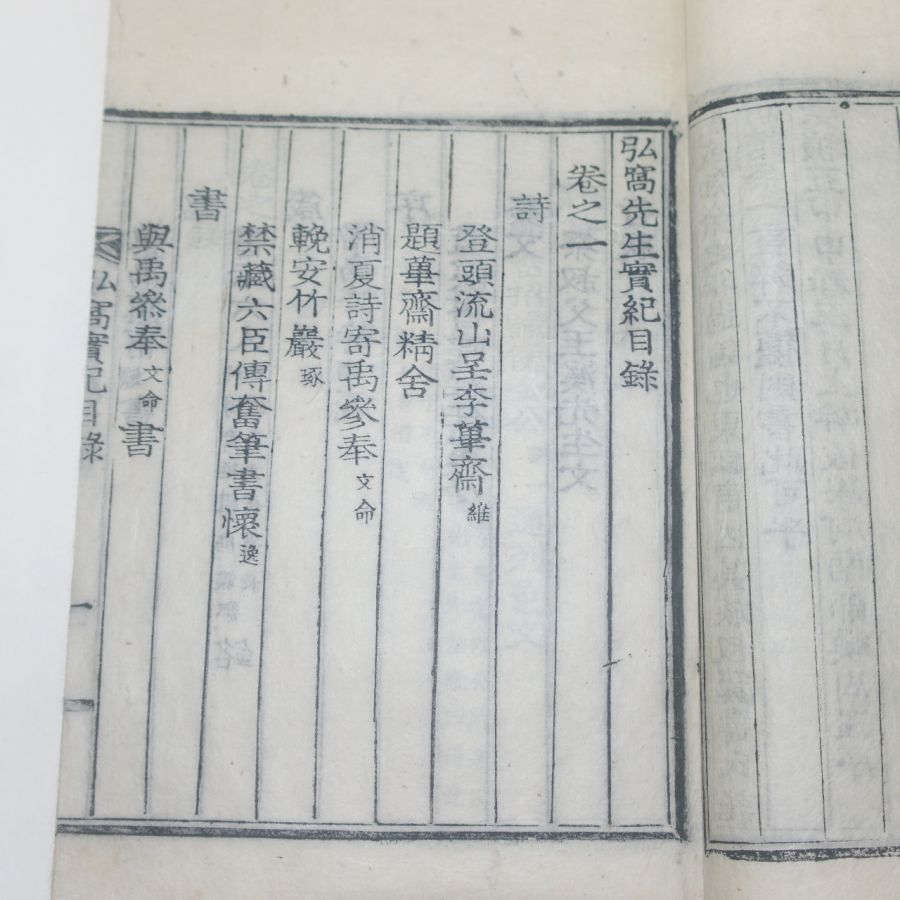 弘窩先生實紀目錄
卷之一
詩
登頭流山呈李篁齋維
題篁齋精舍
消夏詩寄禹參奉文命
輓安竹巖琢
禁藏六臣傳奮筆書懷逸
書
與禹參奉文命書
弘窩實紀目錄 一